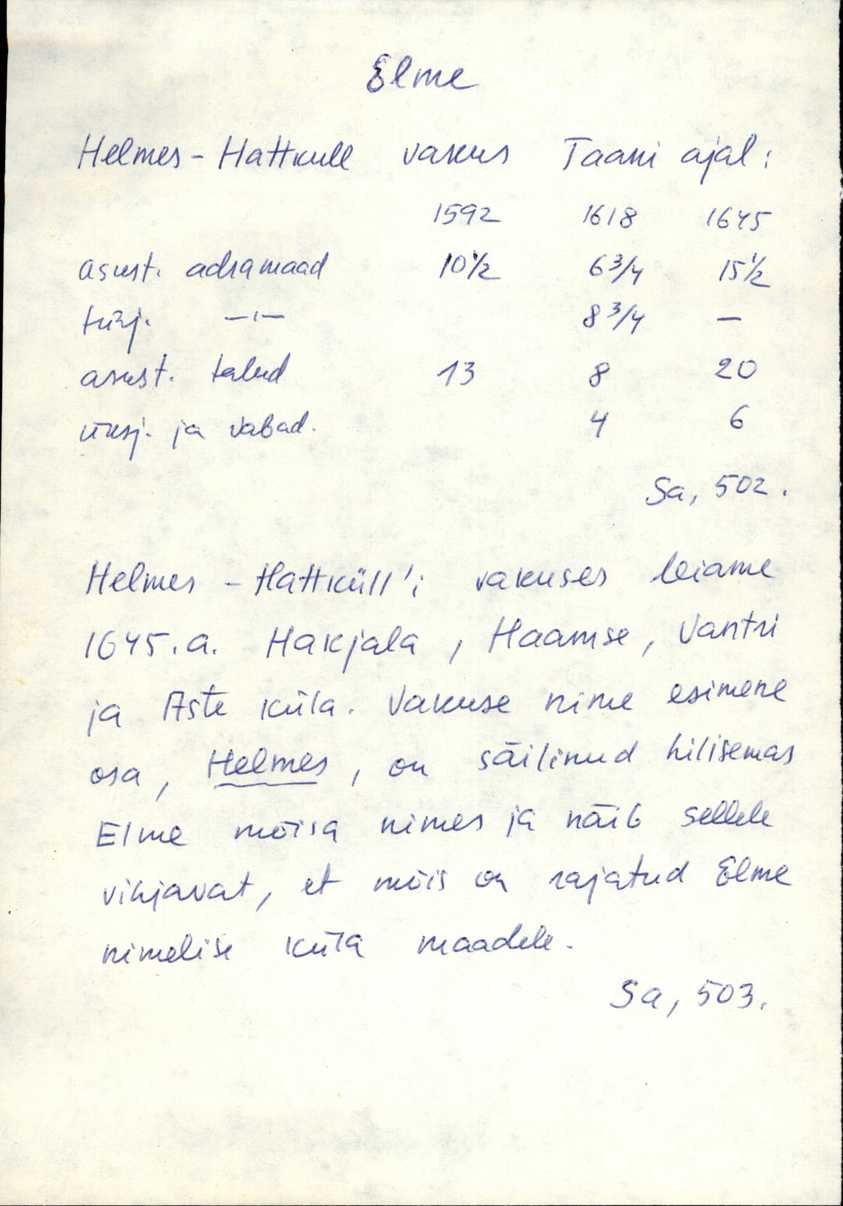 Elme
Helmes - Hattkull vakus Taani ajal:
1592 1618 1645
asust. adramaad 10 1/2 6 3/4 15 1/2
tühj. —"— 8 3/4 —
asust. talud 13 8 20
üksj. ja vabad. 4 6
Sa, 502.
Helmes - Hattküll'i vakuses leiame
1645.a. Hakjala, Haamse, Vantri
ja Aste küla. Vakuse nime esimene
osa, Helmes, on säilinud hilisemas
Elme mõisa nimes ja näib sellele
vihjavat, et mõis on rajatud Elme
nimelise küla maadele.
Sa, 503.